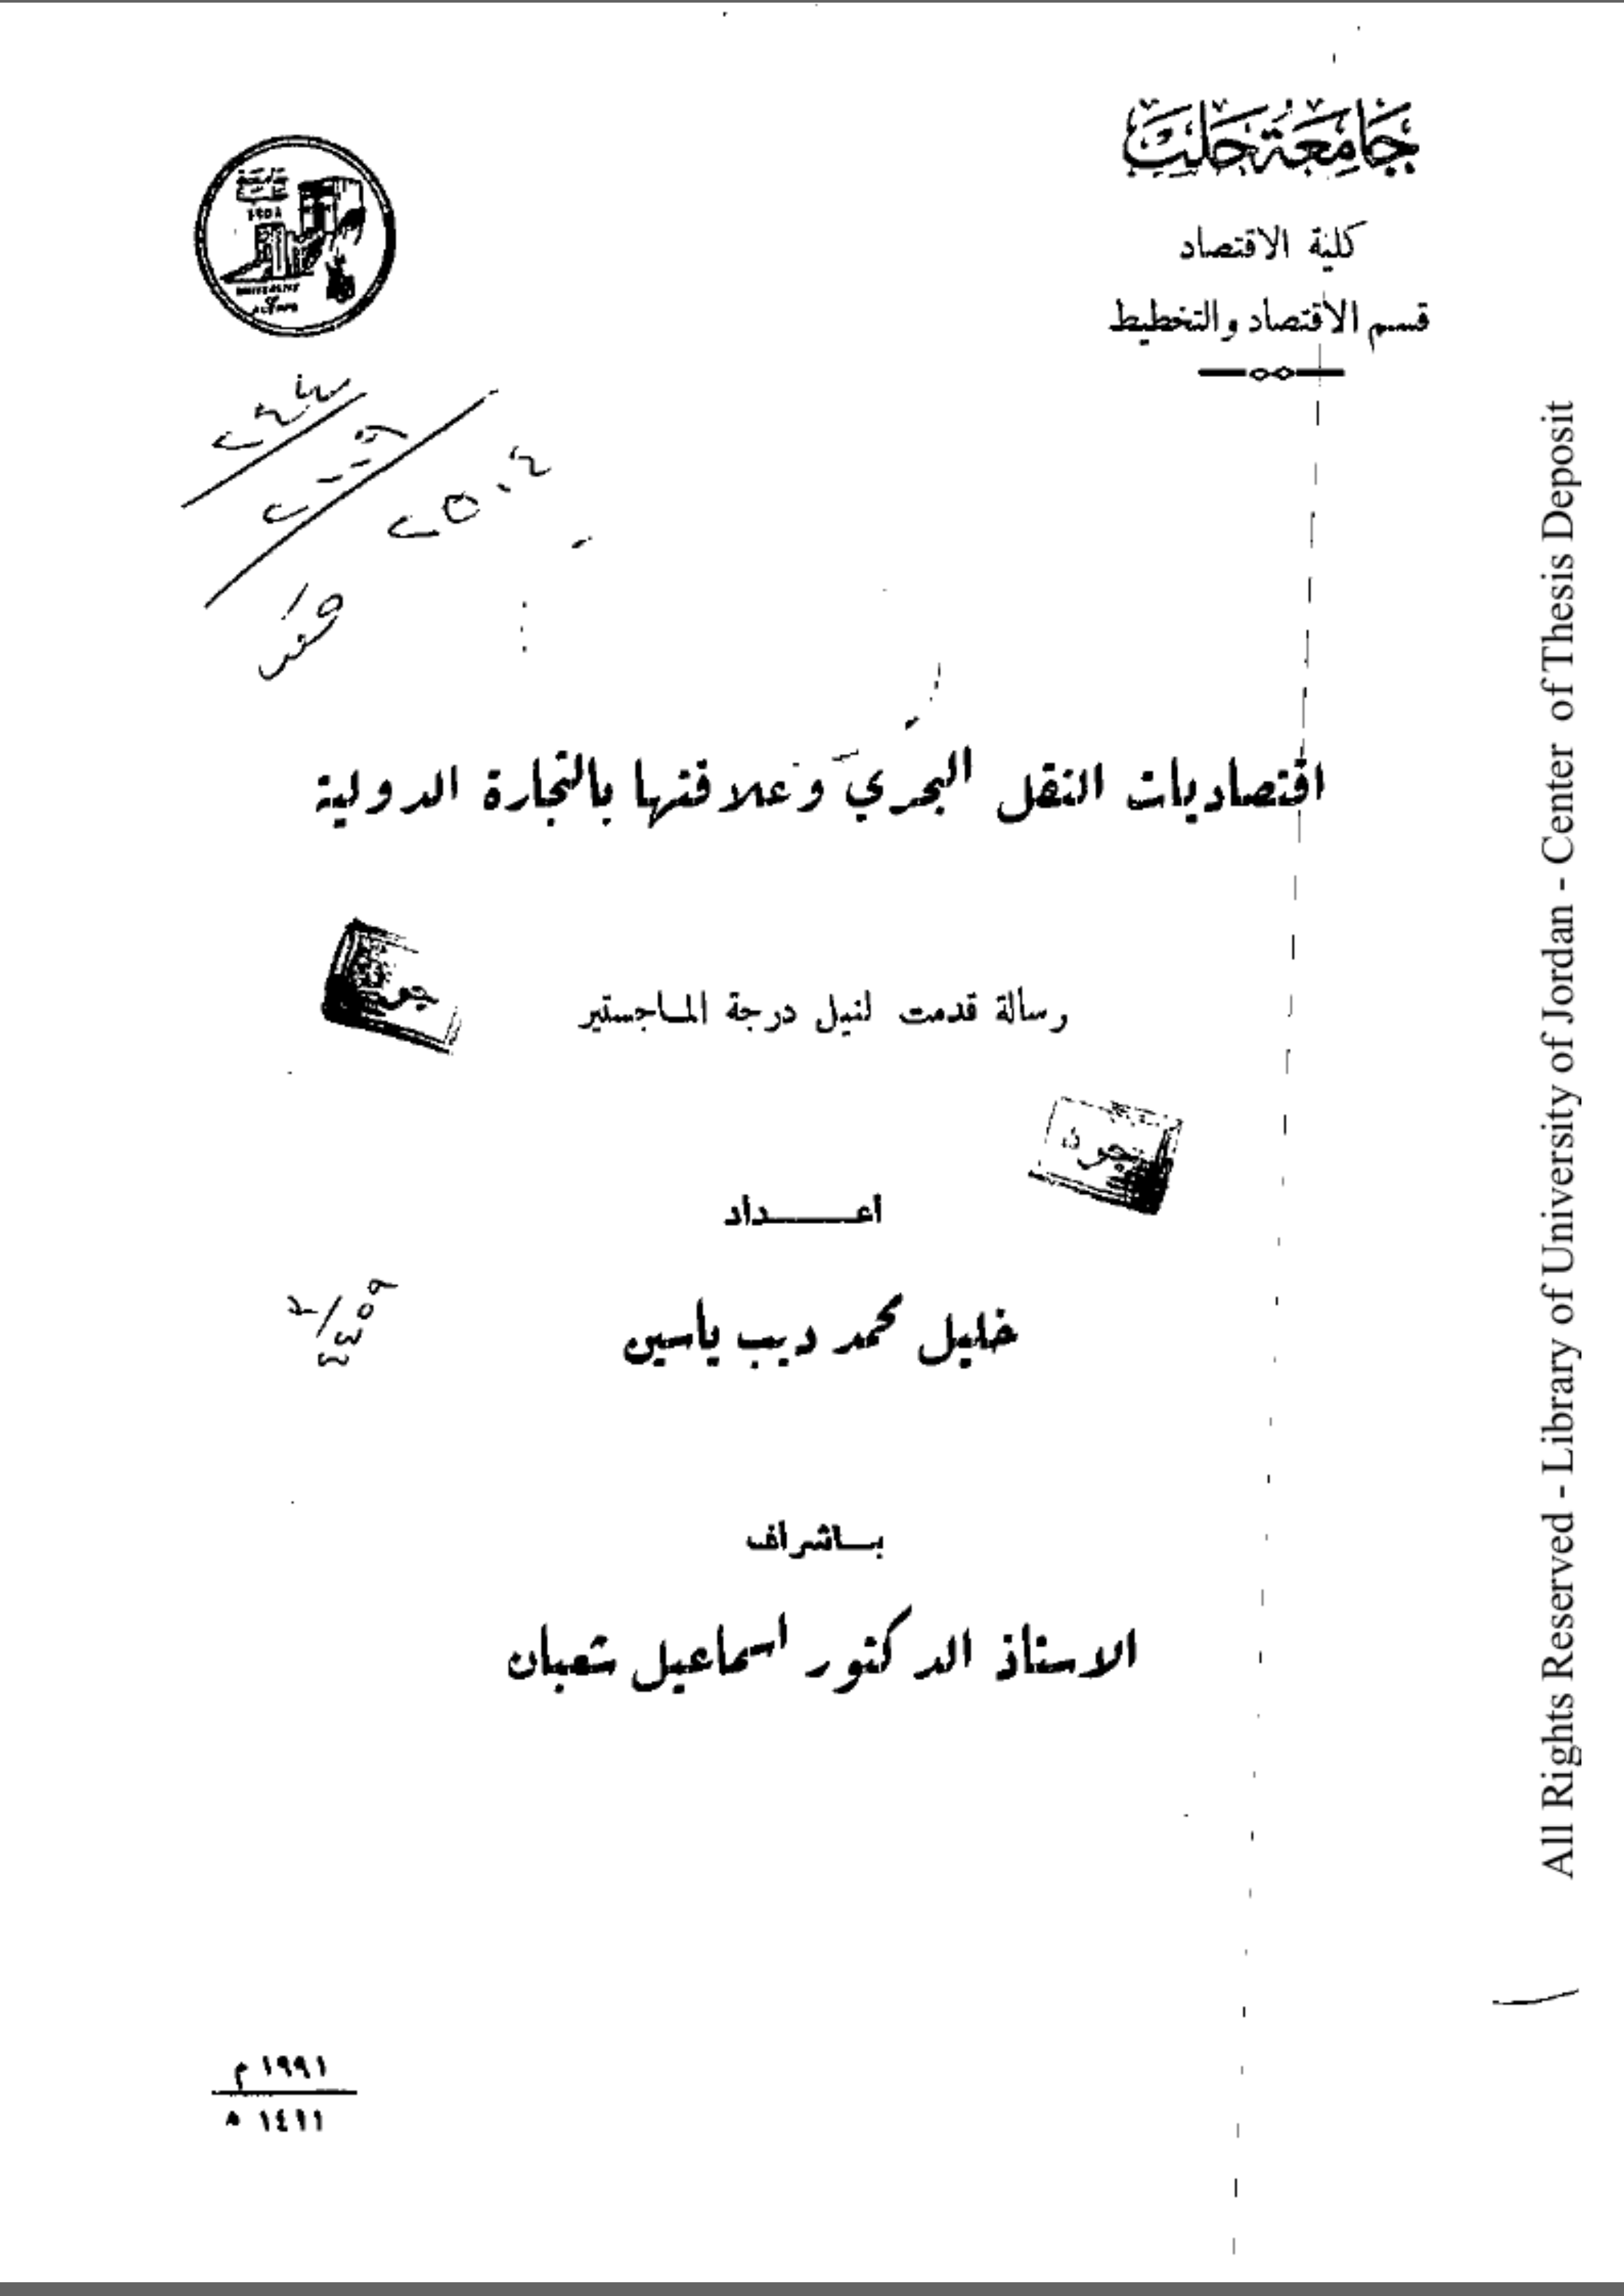 جامعة حلب
كلية الاقتصاد
قسم الاقتصاد والتخطيط
١٩٥٨
UNIVERSITY
OF
ALEPPO
اقتصاديات النقل البحري وعلاقتها بالتجارة الدولية
رسالة قدمت لنيل درجة الماجستير
اعـــــداد
خليل محمد ديب ياسين
بـاشراف
الاستاذ الدكتور اسماعيل شعبان
١٩٩١ م
١٤١١ ه
All Rights Reserved - Library of University of Jordan - Center of Thesis Deposit